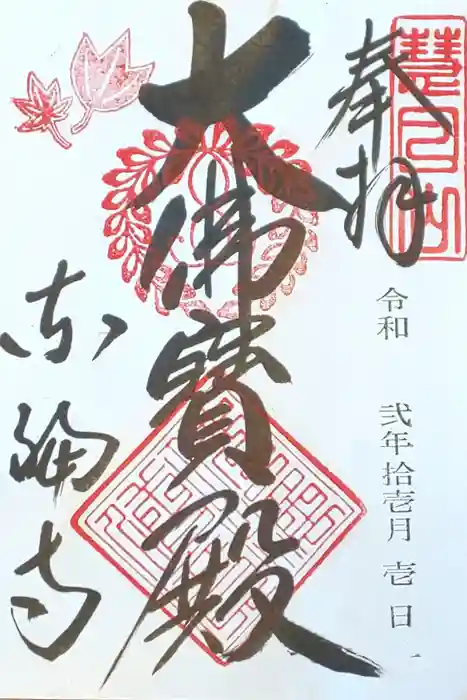 慧日山
奉拝
令和 弐年拾壱月 壱日
大佛寶殿
東福寺